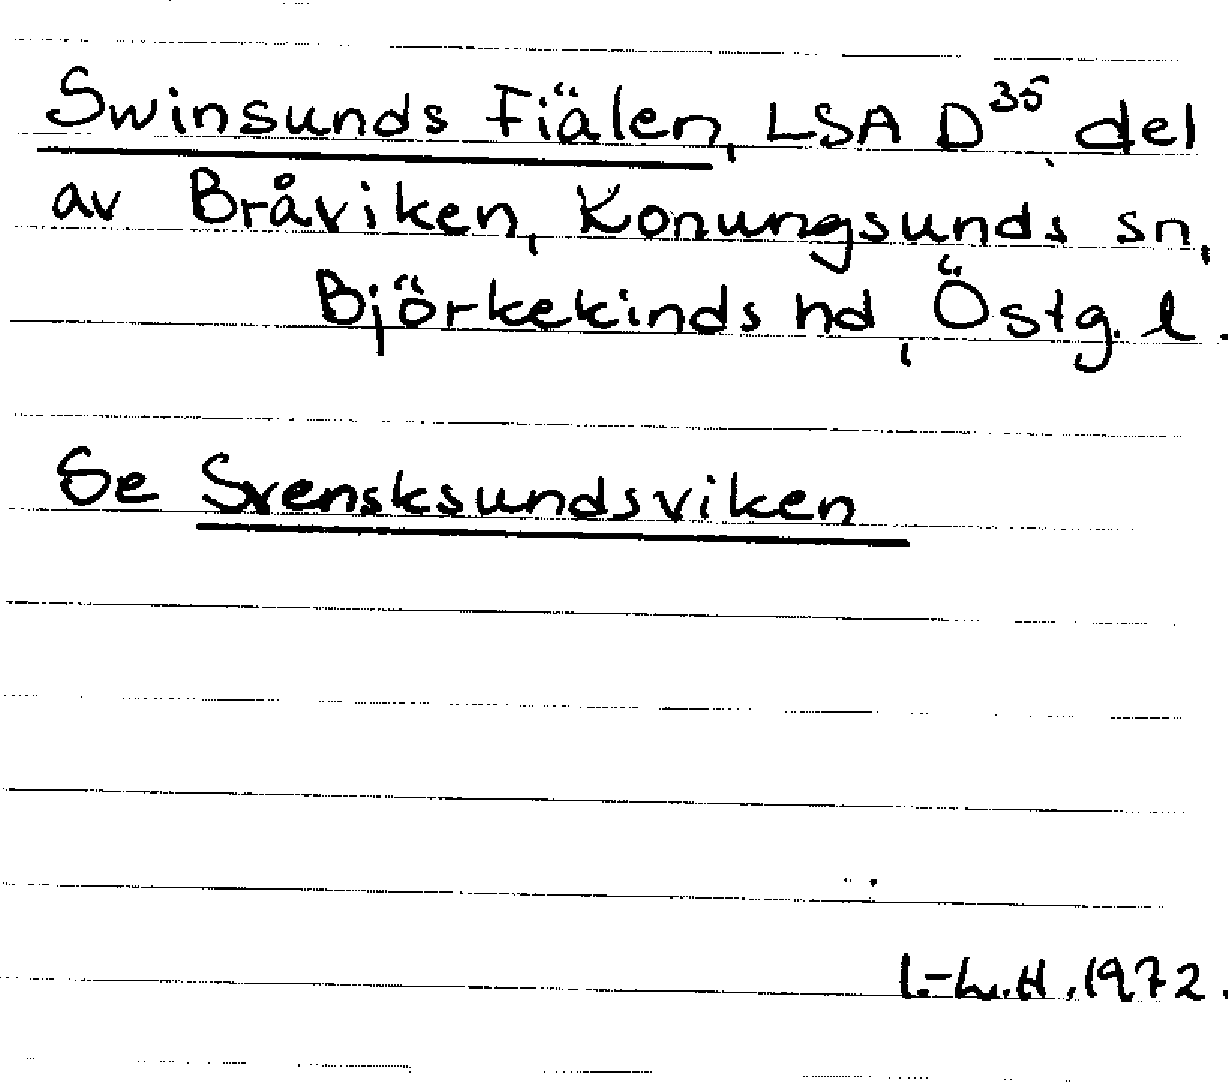 Swinsunds Fiälen, LSA D³⁵, del
av Bråviken, Konungsunds sn,
Björkekinds hd, Östg. l.
Se Svensksundsviken
I.-L.H, 1972.